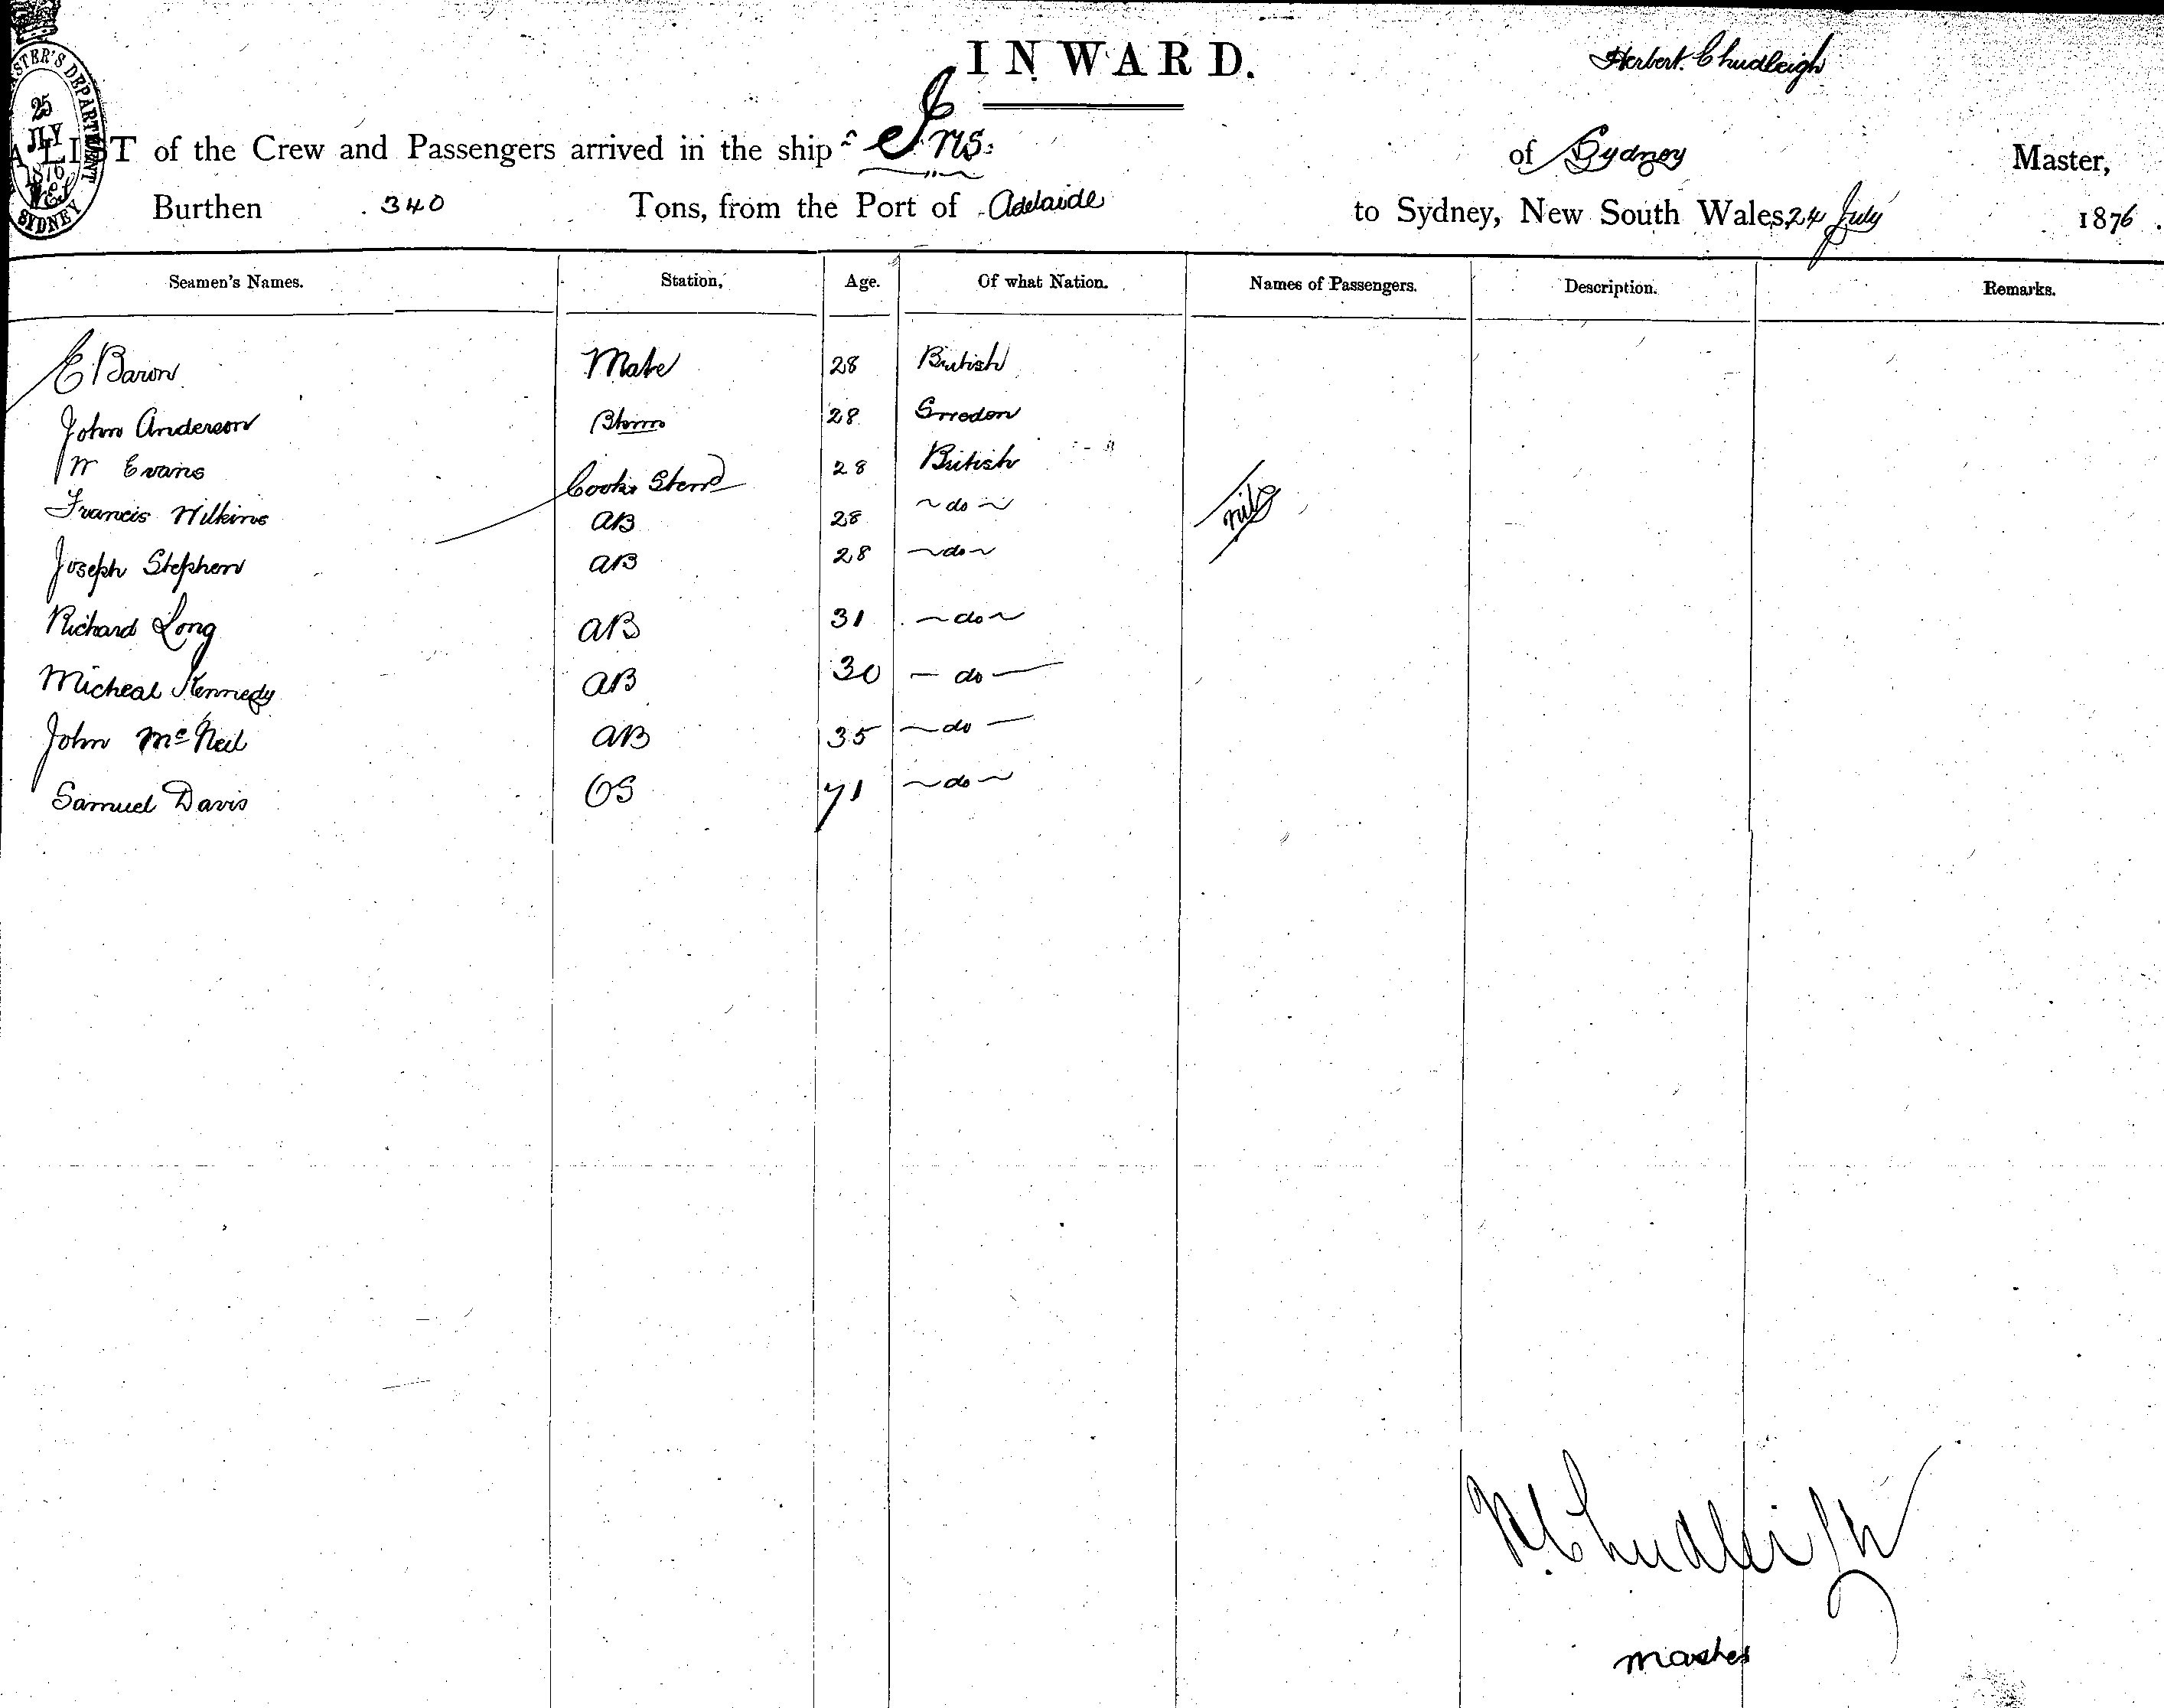 INWARD.
Herbert Chudleigh
A LIST of the Crew and Passengers arrived in the ship Iris of Sydney Master,
Burthen 340 Tons, from the Port of Adelaide to Sydney, New South Wales, 24 July 1876.
25
JLY
1876
SYDNEY
Seamen's Names. Station, Age. Of what Nation. Names of Passengers. Description. Remarks.
E Baron Mate 28 British
John Anderson 28 Sweden
W Evans Cook & Stewd 28 British
Francis Wilkins AB 28 do nil
Joseph Stephen AB 28 do
Richard Long AB 31 do
Micheal Kennedy AB 30 do
John McNeil AB 35 do
Samuel Davis OS 71 do
H Chudleigh
Master